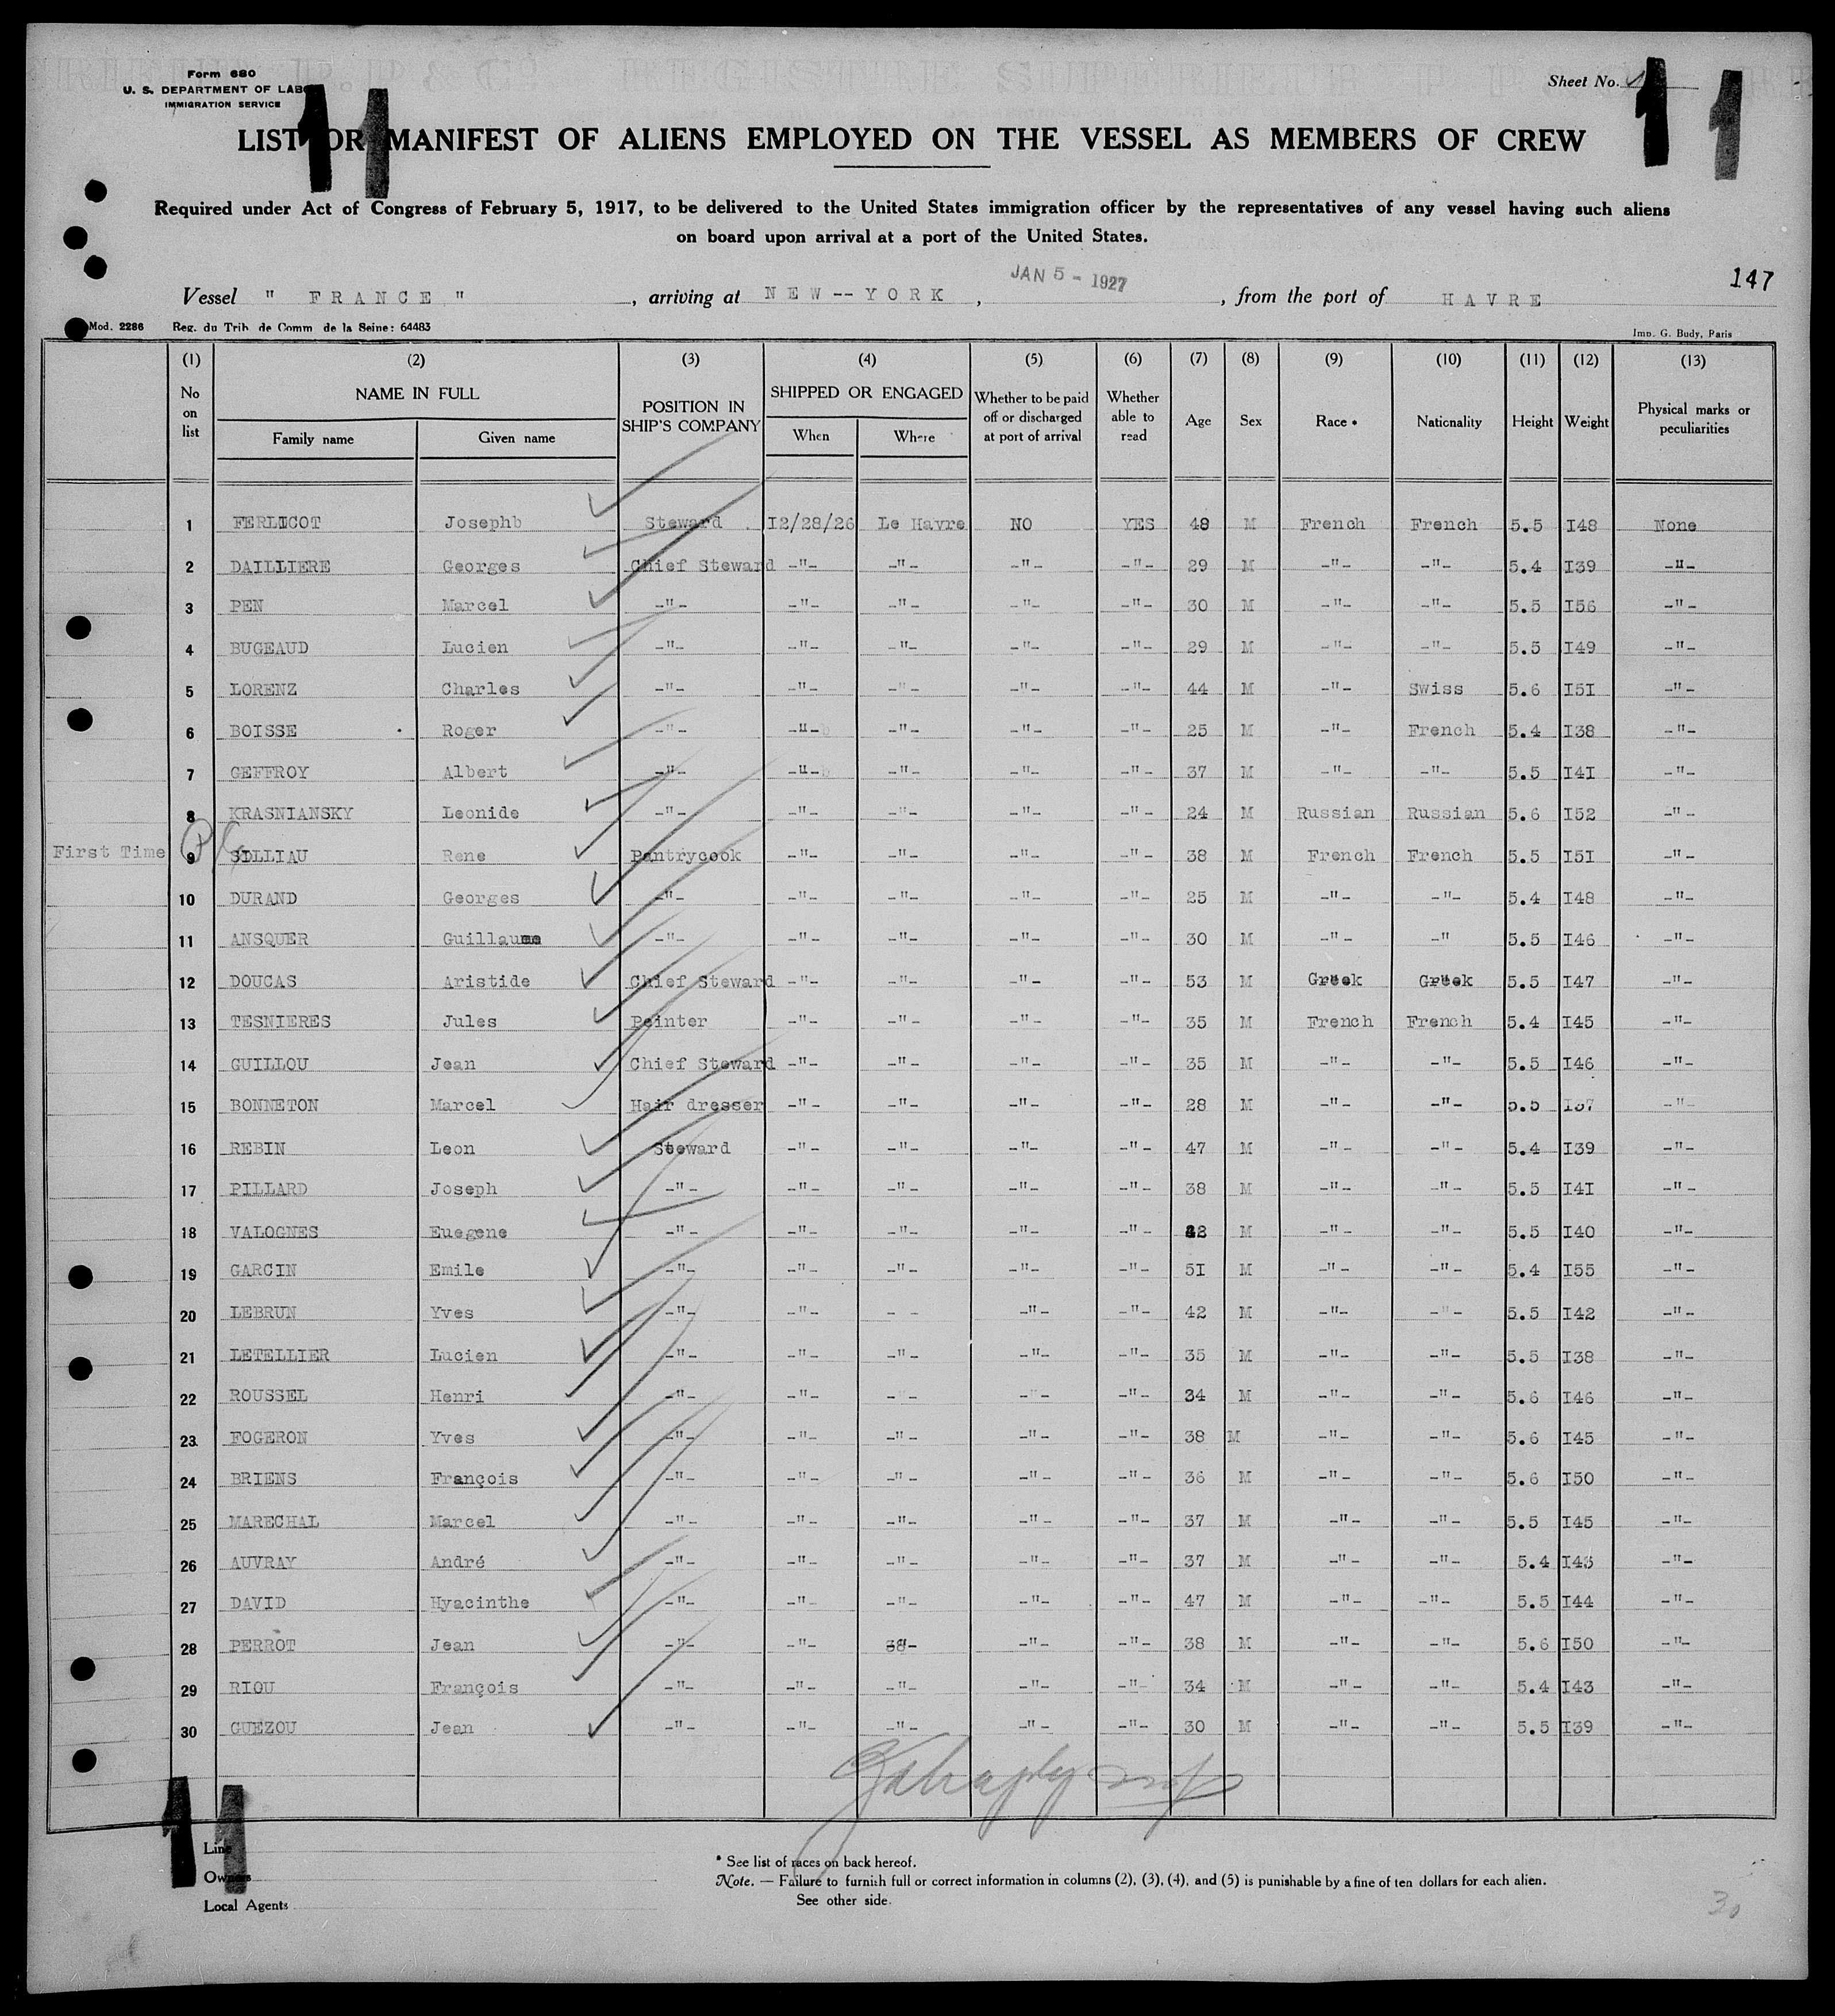 Form 680
U. S. DEPARTMENT OF LABOR
IMMIGRATION SERVICE
Sheet No.
11
11
LIST OR MANIFEST OF ALIENS EMPLOYED ON THE VESSEL AS MEMBERS OF CREW
Required under Act of Congress of February 5, 1917, to be delivered to the United States immigration officer by the representatives of any vessel having such aliens
on board upon arrival at a port of the United States.
147
Vessel " FRANCE ", arriving at NEW--YORK, JAN 5 - 1927, from the port of HAVRE
Mod. 2286 Reg. du Trib. de Comm de la Seine: 64483 Imp. G. Budy, Paris
(1) (2) (3) (4) (5) (6) (7) (8) (9) (10) (11) (12) (13)
No on list NAME IN FULL Family name Given name POSITION IN SHIP'S COMPANY SHIPPED OR ENGAGED When Where Whether to be paid off or discharged at port of arrival Whether able to read Age Sex Race * Nationality Height Weight Physical marks or peculiarities
1 FERLICOT Josephb Steward I2/28/26 Le Havre NO YES 48 M French French 5.5 I48 None
2 DAILLIERE Georges Chief Steward -"- -"- -"- -"- 29 M -"- -"- 5.4 I39 -"-
3 PEN Marcel -"- -"- -"- -"- -"- 30 M -"- -"- 5.5 I56 -"-
4 BUGEAUD Lucien -"- -"- -"- -"- -"- 29 M -"- -"- 5.5 I49 -"-
5 LORENZ Charles -"- -"- -"- -"- -"- 44 M -"- Swiss 5.6 I5I -"-
6 BOISSE Roger -"- -"- -"- -"- -"- 25 M -"- French 5.4 I38 -"-
7 GEFFROY Albert -"- -"- -"- -"- -"- 37 M -"- -"- 5.5 I4I -"-
8 KRASNIANSKY Leonide -"- -"- -"- -"- -"- 24 M Russian Russian 5.6 I52 -"-
First Time 9 SILLIAU Rene Pantrycook -"- -"- -"- -"- 38 M French French 5.5 I5I -"-
10 DURAND Georges -"- -"- -"- -"- -"- 25 M -"- -"- 5.4 I48 -"-
11 ANSQUER Guillaume -"- -"- -"- -"- -"- 30 M -"- -" 5.5 I46 -"-
12 DOUCAS Aristide Chief Steward -"- -"- -"- -"- 53 M Greek Greek 5.5 I47 -"-
13 TESNIERES Jules Peinter -"- -"- -"- -"- 35 M French French 5.4 I45 -"-
14 GUILLOU Jean Chief Steward -"- -"- -"- -"- 35 M -"- -"- 5.5 I46 -"-
15 BONNETON Marcel Hair dresser -"- -"- -"- -"- 28 M -"- -"- 5.5 I37 -"-
16 REBIN Leon Steward -"- -"- -"- -"- 47 M -"- -"- 5.4 I39 -"-
17 PILLARD Joseph -"- -"- -"- -"- -"- 38 M -"- -"- 5.5 I4I -"-
18 VALOGNES Euegene -"- -"- -"- -"- -"- M -"- -"- 5.5 I40 -"-
19 GARCIN Emile -"- -"- -"- -"- -"- 5I M -"- -"- 5.4 I55 -"-
20 LEBRUN Yves -"- -"- - - -"- -"- 42 M -"- -"- 5.5 I42 -"-
21 LETELLIER Lucien -"- -"- -"- -"- -"- 35 M -"- -"- 5.5 I38 -"-
22 ROUSSEL Henri -"- -"- -"- -"- -"- 34 M -"- -"- 5.6 I46 -"-
23 FOGERON Yves -"- -"- -"- -"- -"- 38 M -"- -"- 5.6 I45 -"-
24 BRIENS François -"- -"- -"- -"- -"- 36 M -"- -"- 5.6 I50 -"-
25 MARECHAL Marcel -"- -"- -"- -"- -"- 37 M -"- -"- 5.5 I45 -"-
26 AUVRAY André -"- -"- -"- -"- -"- 37 M -"- -"- 5.4 I43 -"-
27 DAVID Hyacinthe -"- -"- -"- -"- -"- 47 M -"- -"- 5.5 I44 -"-
28 PERROT Jean -"- -"- -"- -"- 38 M -"- -"- 5.6 I50 -"-
29 RIOU François -"- -"- -"- -"- -"- 34 M -"- -"- 5.4 I43 -"-
30 GUEZOU Jean -"- -"- -"- -"- -"- 30 M -"- -"- 5.5 I39 -"-
11
Line
Owners
Local Agents
* See list of races on back hereof.
Note. — Failure to furnish full or correct information in columns (2), (3), (4), and (5) is punishable by a fine of ten dollars for each alien.
See other side.
30